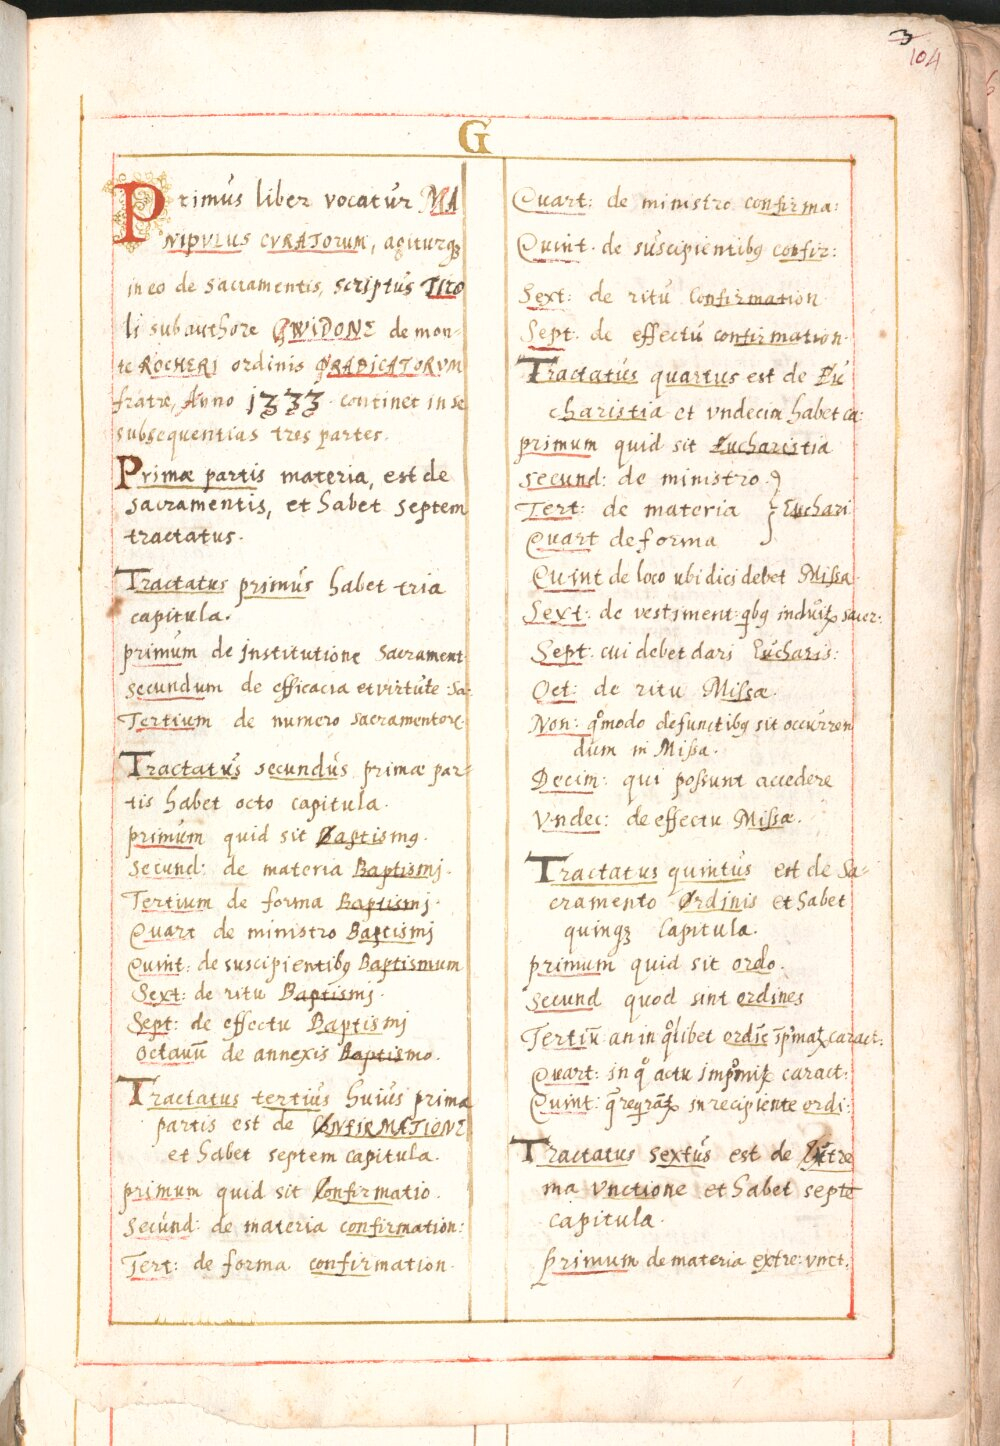 3
104
G
Primus liber vocatur MA
NIPVLUS CVRATORUM, agiturqꝫ
in eo de sacramentis, scriptus Tiro
li sub authore GWIDONE de mon-
te ROCHERI ordinis PRÆDICATORVM
fratre, Anno 1333. continet in se
subsequentias tres partes.
Primæ partis materia, est de
sacramentis, et habet septem
tractatus.
Tractatus primus habet tria
capitula.
primum de institutione Sacrament
secundum de efficacia et virtute Sa-
Tertium de numero sacramentore
Tractatus secundus primæ par-
tis habet octo capitula.
primum quid sit Baptismꝰ.
Secund: de materia Baptismj.
Tertium de forma Baptismj.
Quart de ministro Baptismj
Quint: de suscipientibꝰ Baptismum
Sext: de ritu Baptismj.
Sept: de effectu Baptismj
Octauū de annexis Baptismo.
Tractatus tertius huius prima
partis est de CONFIRMATIONE
et habet septem capitula.
primum quid sit Confirmatio.
Secund: de materia confirmation:
Tert: de forma confirmation.
Quart: de ministro confirma:
Quint. de suscipientibꝰ confir:
Sext: de ritu Confirmation
Sept. de effectu confirmation.
Tractatus quartus est de Eu
charistia et vndecim habet ca:
primum quid sit Eucharistia
secund: de ministro.
Tert: de materia } Euchari
Quart de forma
Quint de loco ubi dici debet Missa
Sext: de vestiment: qbꝰ induitꝛ sacer:
Sept. cui debet dari Eucharis:
Oct: de ritu Missæ.
Non: qͦmodo defunctibꝰ sit occurren
dum in Missa.
Decim: qui possunt accedere
Vndec: de effectu Missæ.
Tractatus quintus est de Sa-
cramento Ordinis et habet
quinqꝫ Capitula.
primum quid sit ordo.
Secund quod sint ordines
Tertiū an in qͦlibet ordīe caract:
Quart: in qͦ actu caract:
Quint: in recipiente ordi:
Tractatus sextus est de Extre
ma Vnctione et habet septē
capitula.
Primum de materia extre: vnct: